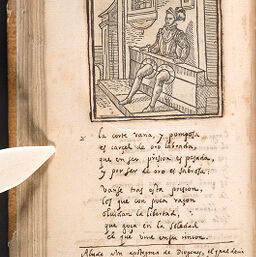 La corte vana, y pomposa
es carcel de oro labrada,
que en ser prision es pesada,
y por ser de oro es sabrosa.
Vanse tras esta prision,
los que con poca razon
olvidan la libertad,
que goza en la soledad
el que vive en su rincon.
Alude a un de Diogenes, el qual